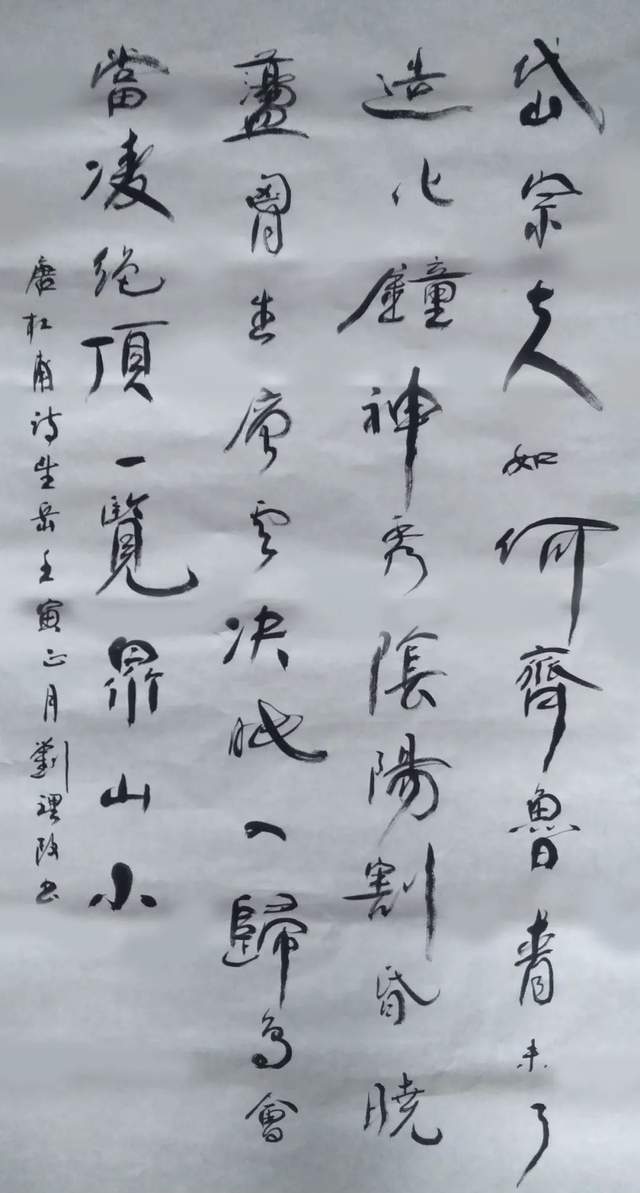 岱宗夫如何齊魯青未了
造化鐘神秀陰陽割昏曉
盪胷生層雲決眥入歸鳥會
當凌絕頂一覽眾山小
唐杜甫詩望岳壬寅正月劉理政书